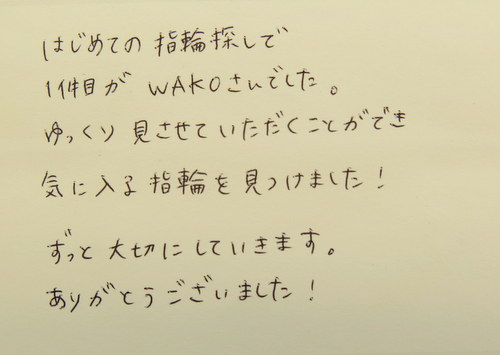 はじめての指輪探しで
1件目が WAKOさんでした。
ゆっくり見させていただくことができ
気に入る指輪を見つけました！
ずっと大切にしていきます。
ありがとうございました！